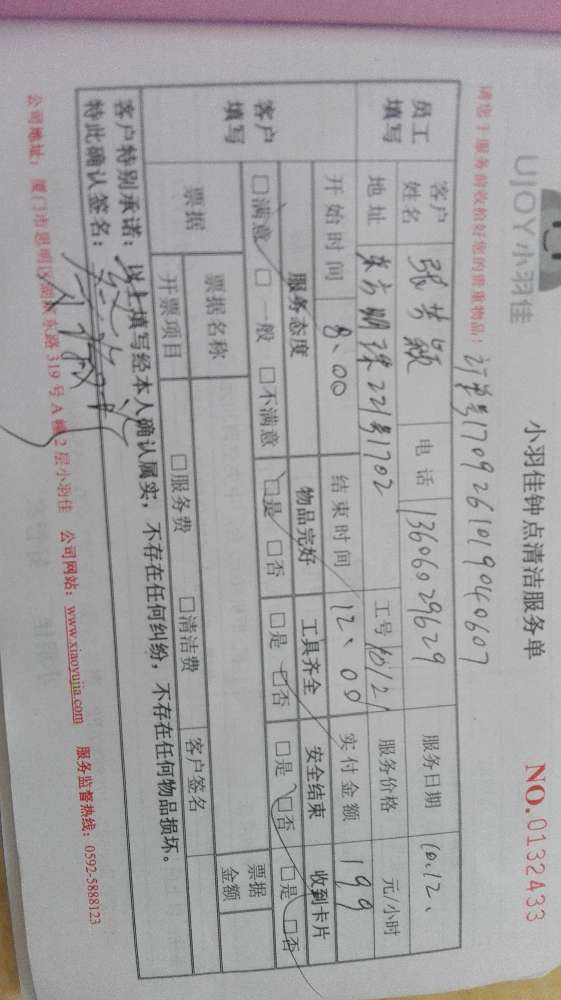 UJOY小羽佳
小羽佳钟点清洁服务单
NO.0132433
请您于服务前收拾好您的贵重物品!
订单号1709261019040607
员工填写
客户姓名
电话 13606029629
服务日期 10.12、
地址 东方明珠22号1702
工号
服务价格 元/小时
开始时间 8、00
结束时间 12、00
实付金额 199
客户填写
服务态度 物品完好 工具齐全 安全结束 收到卡片
□满意 □一般 □不满意 □是 □否 □是 □否 □是 □否 □是 □否
票据
票据名称
票据金额
开票项目 □服务费 □清洁费 客户签名
客户特别承诺:以上填写经本人确认属实,不存在任何纠纷,不存在任何物品损坏。
特此确认签名:
公司地址:厦门市思明区湖滨东路 319 号 A 幢 2 层小羽佳 公司网站:www.xiaoyujia.com 服务监督热线:0592-5888123